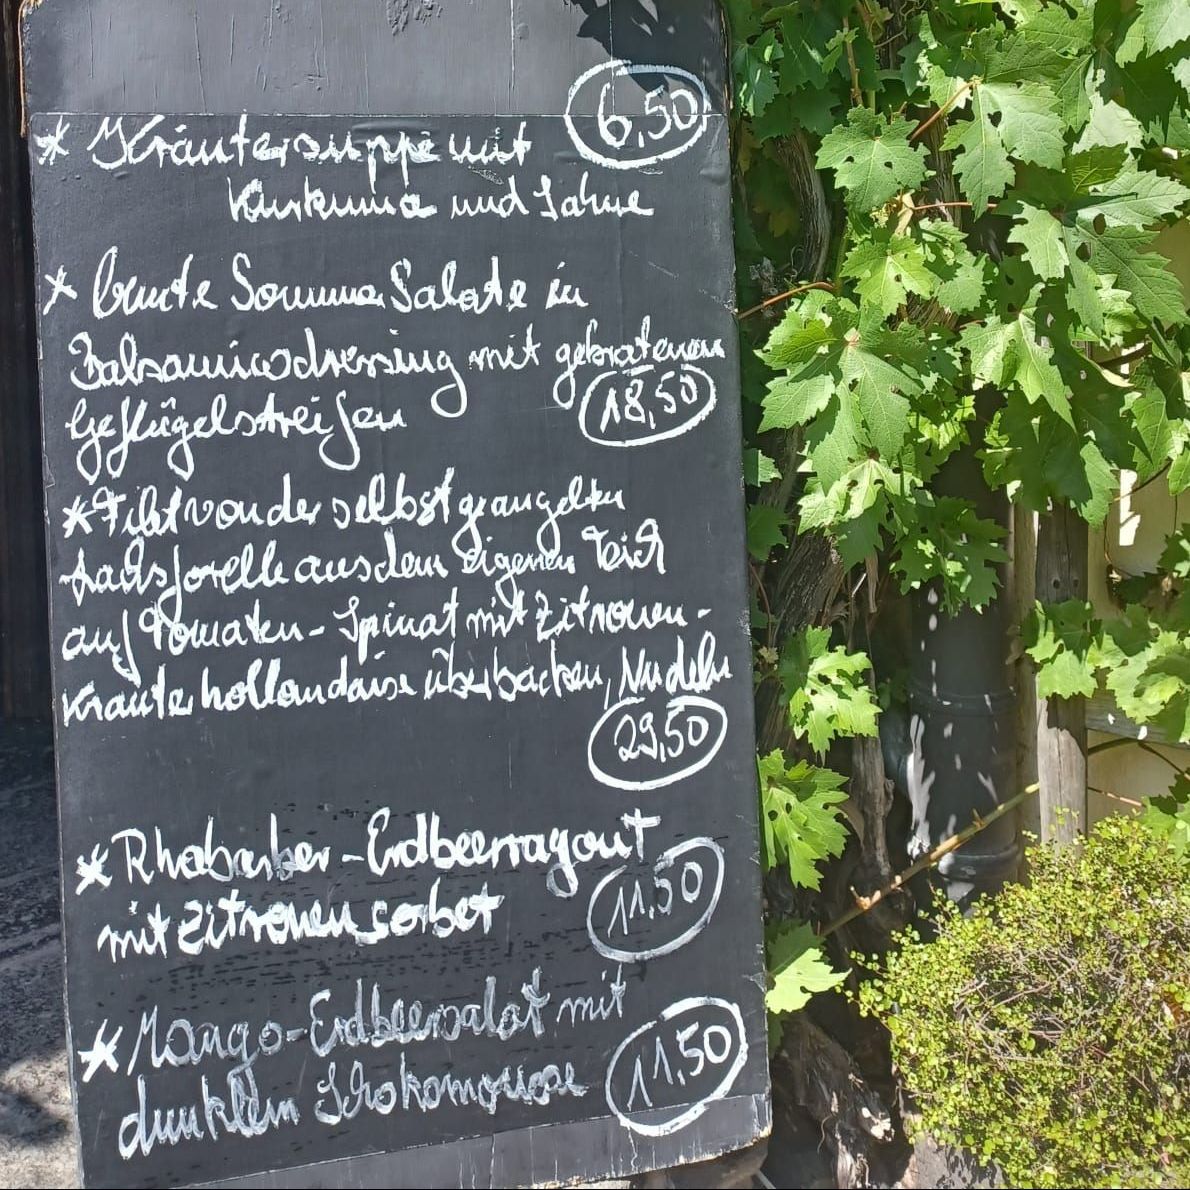 6,50
* Kräutersuppe mit
Kurkuma und Sahne
* bunte Sommer Salate in
Balsamicodressing mit gebratenen
Geflügelstreifen
18,50
* Filet von der selbstgeangelten
Lachsforelle aus dem eigenen Teich
auf Tomaten-Spinat mit Zitronen-
kräuterhollandaise überbacken, Nudeln
29,50
* Rhabarber-Erdbeerragout
mit Zitronensorbet
11,50
* Mango-Erdbeersalat mit
dunklem Schokomousse
11,50